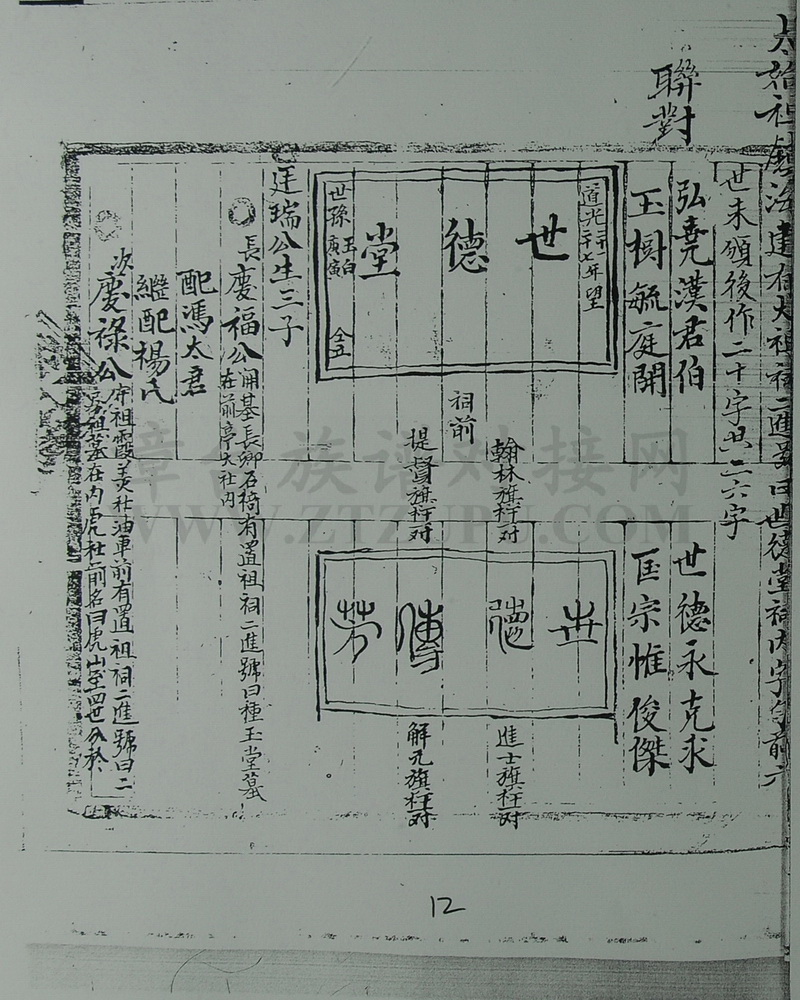 太始祖廟法建在大祖祠二進名曰世德堂祠內字勻前六
世未頒後作二十字共二六字
聯對
弘堯漢君伯
玉樹毓庭開
世德永克求
匡宗惟俊傑
道光二十七年望
世德堂
世孫
玉白
祠前
翰林旗杆対
提督旗杆対
世德傳芳
進士旗杆対
解元旗杆対
廷瑞公生三子
長慶福公開基長鄉石椅有置祖祠二進號曰種玉堂墓
在前亭大社內
配馮太君
繼配楊氏
次慶祿公
祖霞美社油車前有置祖祠二進號曰二
房祖墓在內虎社前名曰虎山至四世分於
漳台族谱对接网
WWW.ZTZUPU.COM
12